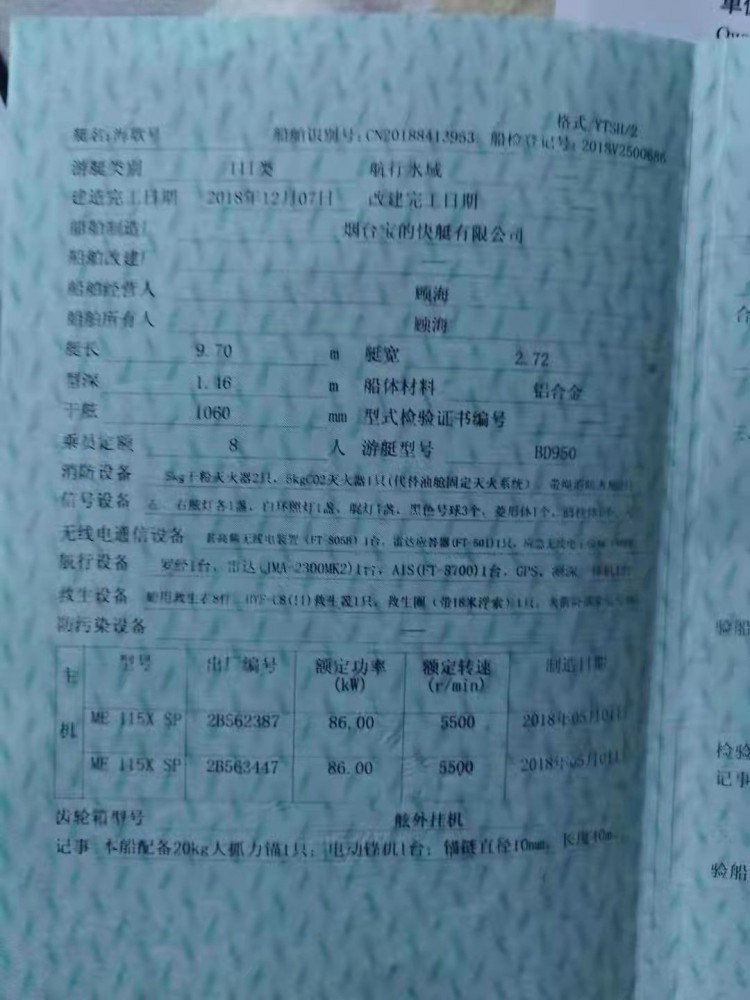 格式 YTSH/2
艇名:海歌号 船舶识别号: CN20188413953 船检登记号: 2018V2500686
游艇类别 III类 航行水域
建造完工日期 2018年12月07日 改建完工日期
船舶制造厂 烟台宝的快艇有限公司
船舶改建厂 —
船舶经营人 顾海
船舶所有人 顾海
艇长 9.70 m 艇宽 2.72
型深 1.16 m 船体材料 铝合金
干舷 1060 mm 型式检验证书编号
乘员定额 8 人 游艇型号 BD950
消防设备 5kg干粉灭火器2只, 5kgCO2灭火器1只(代替油舱固定灭火系统)
信号设备 右舷灯各1盏, 白环照灯1盏, 黑色号球3个, 菱形体1个
无线电通信设备 甚高频无线电装置 (FT-805B) 1台, 雷达应答器(FT-501)1只
航行设备 罗经1台, 雷达(JMA-2300MK2)1台, AIS(FT-8700)1台, GPS, 测深
救生设备 船用救生衣8件, 救生筏1只, 救生圈 (带18米浮索)1只
防污染设备 —
主机 型号 出厂编号 额定功率(kW) 额定转速(r/min) 制造日期
ME 115X SP 2B562387 86.00 5500 2018年05月01日
ME 115X SP 2B563447 86.00 5500 2018年05月01日
齿轮箱型号 舷外挂机
记事 本船配备20kg大抓力锚1只; 电动锚机1台; 锚链直径10mm, 长度40m
验船
检验
记事
验船